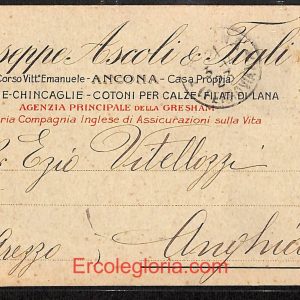 seppe Ascoli & Figli
Corso Vitt. Emanuele - ANCONA - Casa Propria
E-CHINCAGLIE - COTONI PER CALZE - FILATI DI LANA
AGENZIA PRINCIPALE DELLA GRESHAM
ria Compagnia Inglese di Assicurazioni sulla Vita
Ezio Vitellozzi
Arezzo
Anghia
Ercolegloria.com